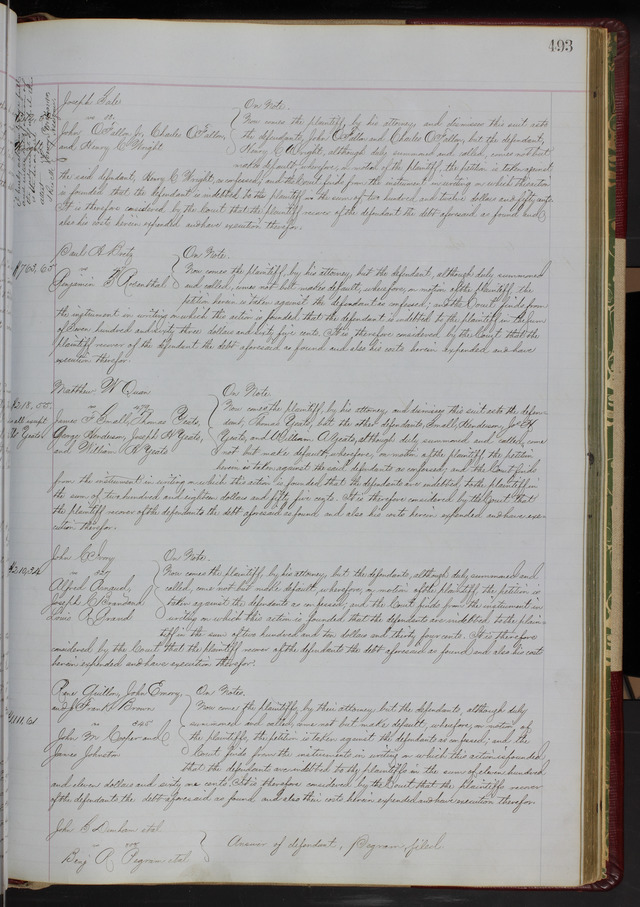 493
Joseph
vs
John O'Fallon Jr, Charles O'Fallon,
and Henry C Wright
On Note.
Now comes the plaintiff, by his attorney, and dismisses this suit as to
the defendants, John O'Fallon and Charles O'Fallon, but the defendant,
Henry C Wright, although duly summoned and called, comes not but
makes default, wherefore, on motion of the plaintiff, the petition is taken against
the said defendant, Henry C Wright, as confessed; and the Court finds from the instrument in writing on which this action
is founded, that the defendant is indebted to the plaintiff in the sum of two hundred and twelve dollars and fifty cents.
It is therefore considered by the Court that the plaintiff recover of the defendant the debt aforesaid as found, and
also his costs herein expended and have execution therefor.
$763,65
Paul
vs
Benjamin Rosenthal
On Note.
Now comes the plaintiff, by his attorney, but the defendant, although duly summoned
and called, comes not but makes default, wherefore, on motion of the plaintiff, the
petition herein is taken against the defendant as confessed; and the Court finds from
the instrument in writing on which the action is founded, that the defendant is indebted to the plaintiff in the sum
of Seven hundred and sixty three dollars and sixty five cents. It is therefore considered by the Court that the
plaintiff recover of the defendant the debt aforesaid as found and also his costs herein expended and have
execution therefor.
$218,55
as to all except
Yeats
Matthew W
vs
James F Small, Thomas Yeats,
George Henderson, Joseph H Yeats,
and William A Yeats
On Note
Now comes the plaintiff, by his attorney and dismisses this suit as to the defen-
dant, Thomas Yeats, but the other defendants, Small, Henderson, Jos H
Yeats, and William A Yeats, although duly summoned and called, come
not but make default, wherefore, on motion of the plaintiff, the petition
herein is taken against the said defendants as confessed; and the Court finds
from the instrument in writing on which this action is founded that the defendants are indebted, to the plaintiff in
the sum of two hundred and eighteen dollars and fifty five cents. It is therefore considered by the Court that
the plaintiff recover of the defendants the debt aforesaid as found and also his costs herein expended and have exe-
cution therefor.
$210,34
John
vs
Alfred
Joseph
Louis
On Note.
Now comes the plaintiff, by his attorney, but the defendants, although duly summoned and
called, come not but make default, wherefore, on motion of the plaintiff, the petition is
taken against the defendants as confessed; and the Court finds from the instrument in
writing on which this action is founded that the defendants are indebted to the plain-
tiff in the sum of two hundred and ten dollars and thirty four cents. It is therefore
considered by the Court that the plaintiff recover of the defendants the debt aforesaid as found and also his costs
herein expended and have execution therefor.
Rene Guillou, John Emory,
and J Frank Brown
vs 345
John W
James Johnston
On Notes.
Now come the plaintiffs, by their attorney, but the defendants, although duly
summoned and called, come not but make default, wherefore, on motion of
the plaintiffs, the petition is taken against the defendants as confessed; and the
Court finds from the instruments in writing on which this action is founded
that the defendants are indebted to the plaintiffs in the sum of eleven hundred
and eleven dollars and sixty one cents. It is therefore considered by the Court that the plaintiffs recover
of the defendants the debt aforesaid as found, and also their costs herein expended and have execution therefor
John Dunham et al
vs
Benj R Pegram et al
Answer of defendant, Pegram filed